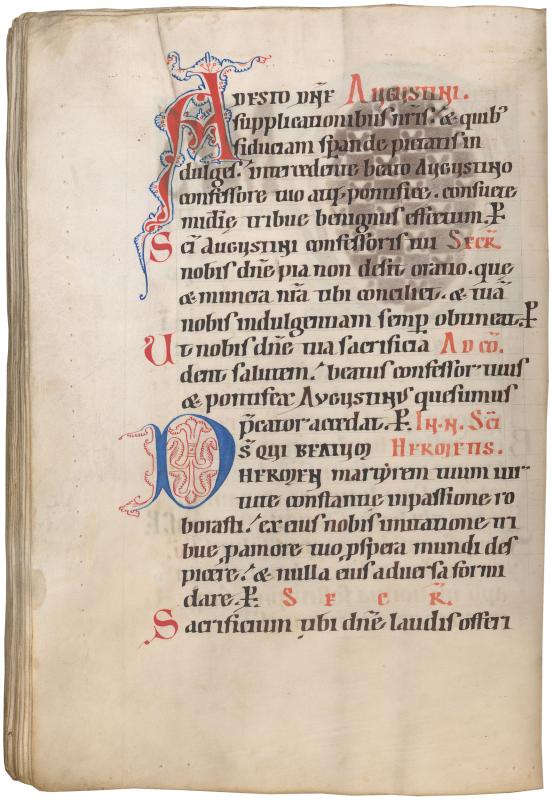 ADESTO DNE AUGUSTINI.
supplicationibus nris. & quib;
fiduciam spande pietatis in
dulges. intercedente beato Augustino
confessore tuo atq. pontifice. consuete
mīdie tribue benignus effectum. P
Sci AUGUSTINI confessoris tui SECR
nobis dne pia non desit oratio. que
& munera nra tibi conciliet. & tuā
nobis indulgentiam semp obtineat. P
Ut nobis dne tua sacrificia AD CŌ.
dent salutem. beatus confessor tuus
& pontifex Augustinus quesumus
pcator accedat. P. IN. N. SCI
DS QUI BEATUM HERMETIS.
HERMEN martyrem tuum uir
tute constantie inpassione ro
borasti. ex eius nobis imitatione tri
bue pamore tuo, pspera mundi des
picere. & nulla eius aduersa formi
dare. P. S E C R.
Sacrificium tibi dne laudis offeri